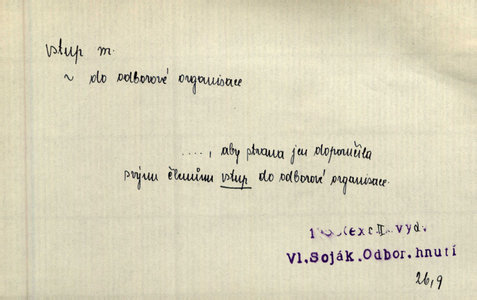 vstup m.
~ do odborové organisace
...., aby strana jen doporučila
svým členům vstup do odborové organisace.
II. vyd.
Vl.Soják.Odbor.hnutí
26,9